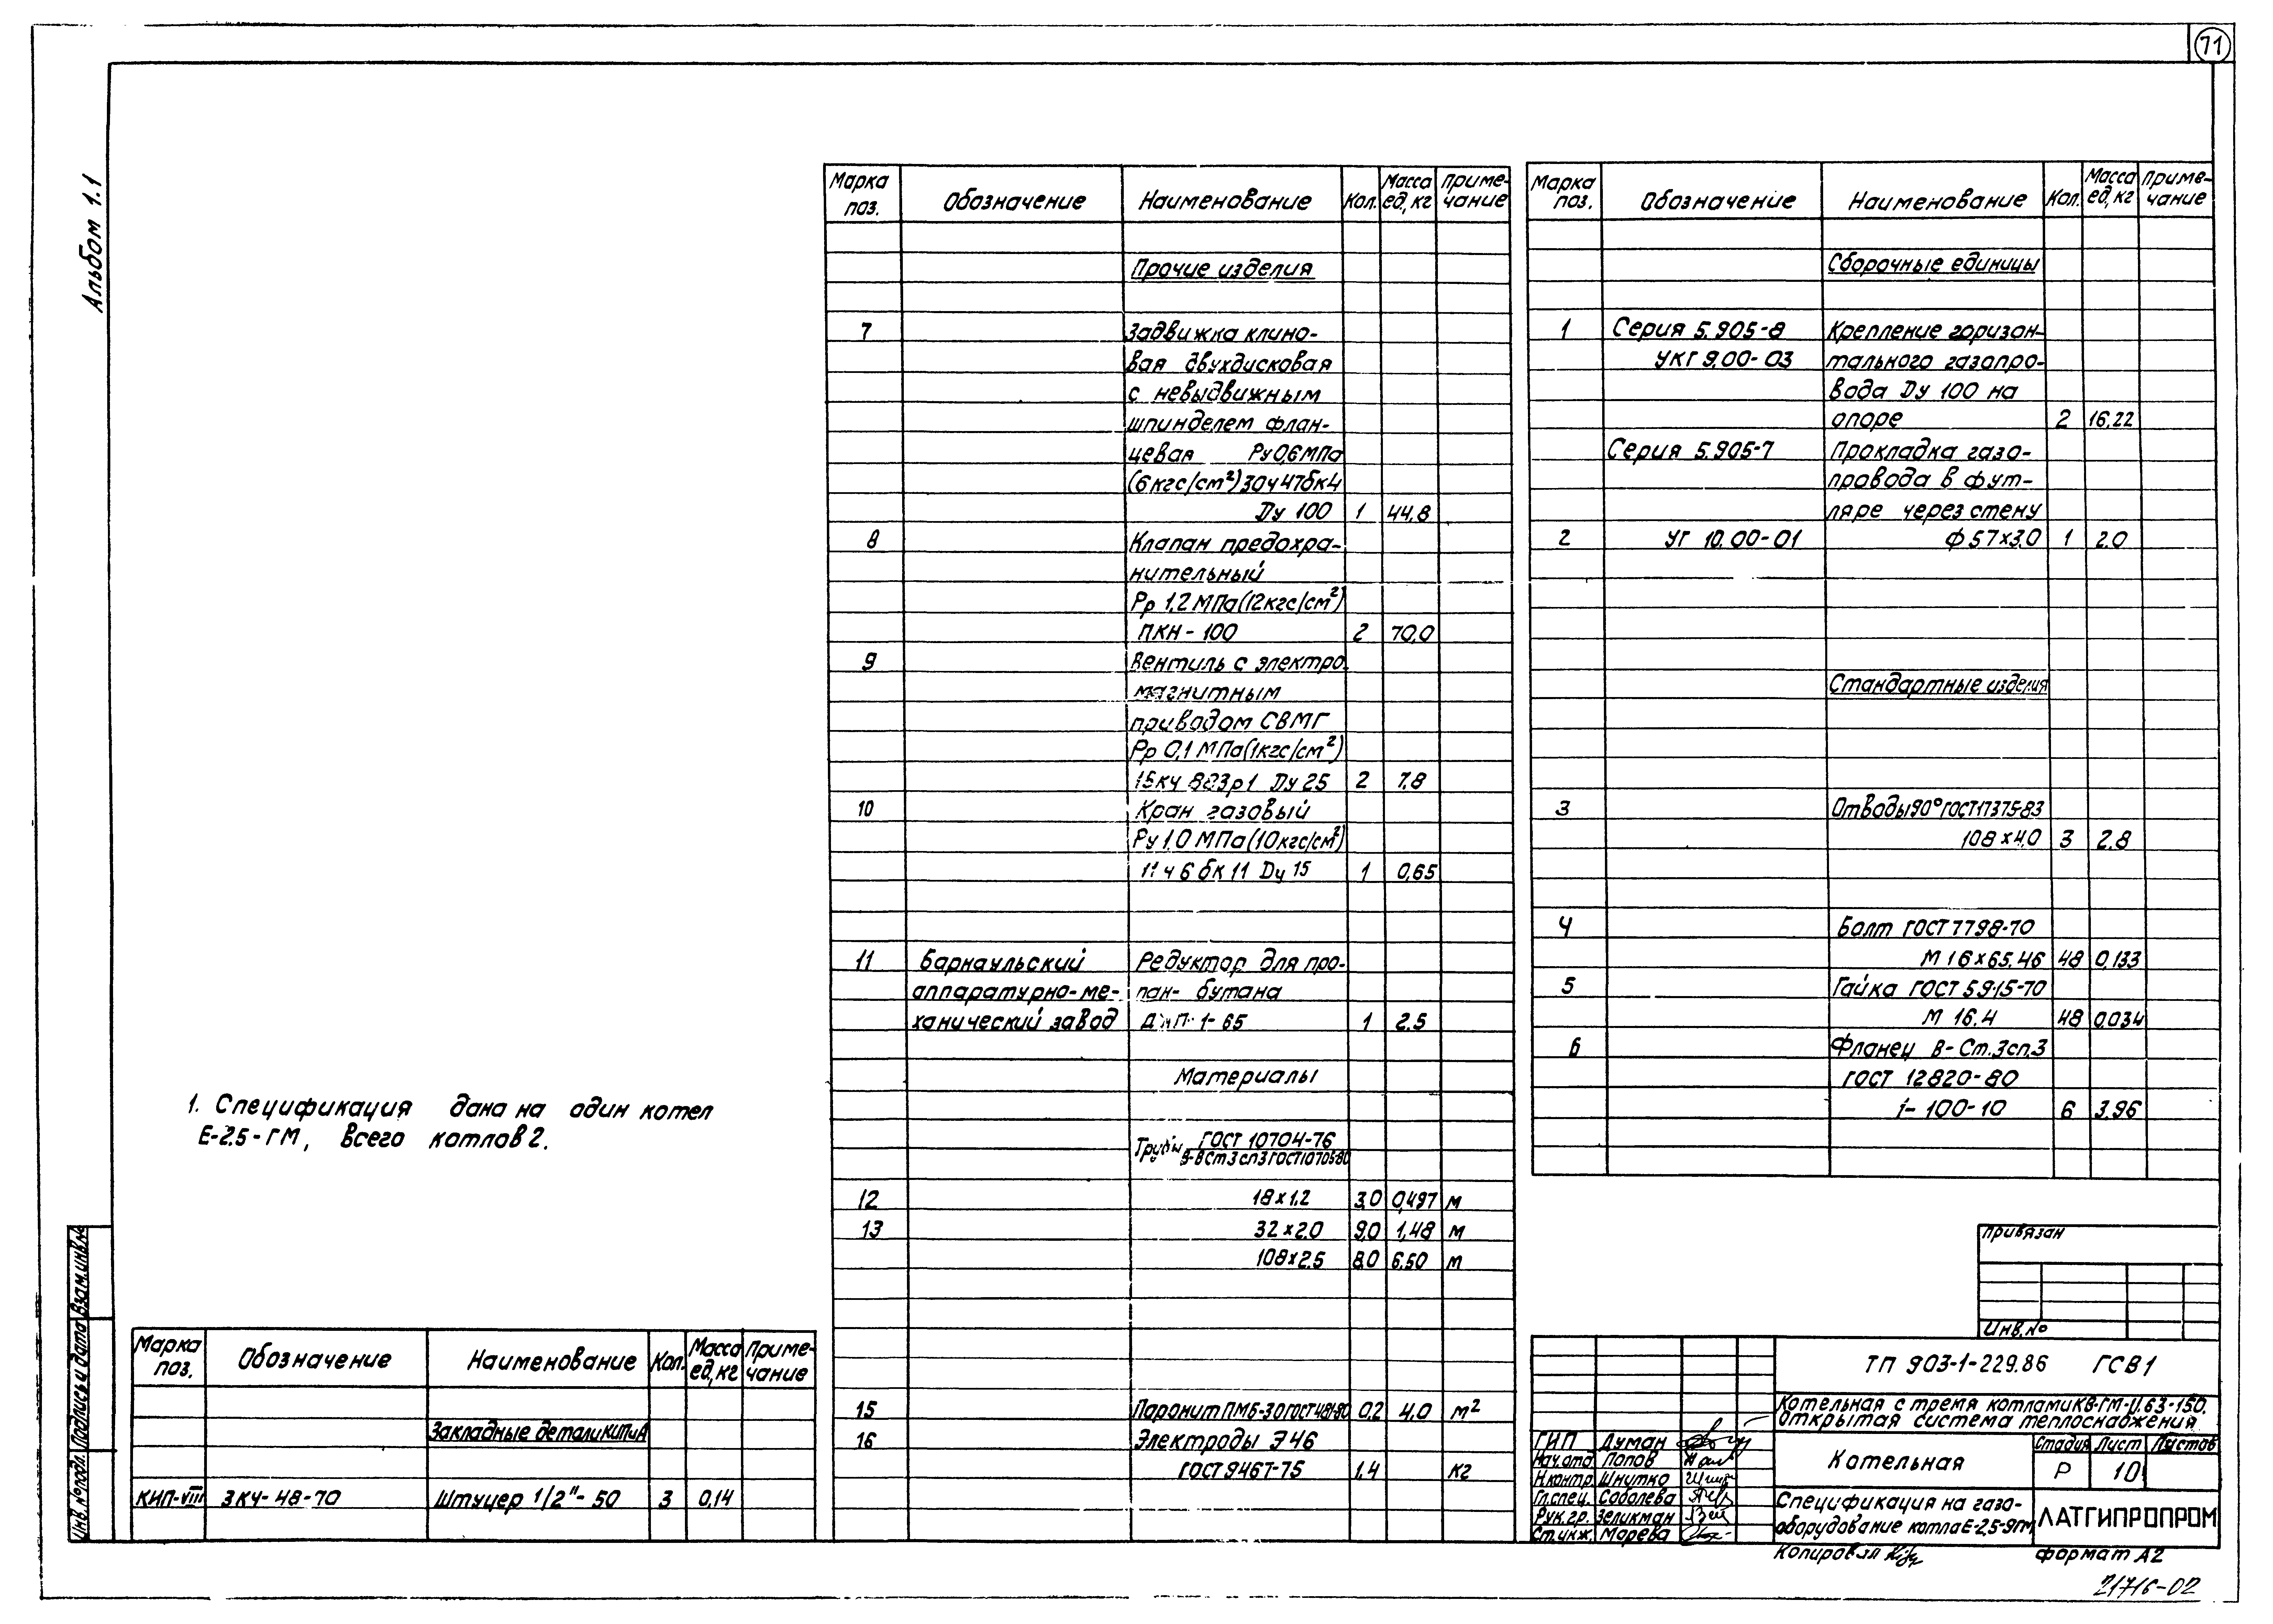 71
Альбом 1.1
1. Спецификация дана на один котел
Е-2.5-ГМ, всего котлов 2.
Марка поз. Обозначение Наименование Кол. Масса ед, кг Приме-чание
Закладные детали КИПиА
КИП-VIII ЗКЧ-48-70 Штуцер 1/2"-50 3 0,14
Марка поз. Обозначение Наименование Кол. Масса ед, кг Приме-чание
Прочие изделия
7 Задвижка клино-
вая двухдисковая
с невыдвижным
шпинделем флан-
цевая Ру 0,6 МПа
(6 кгс/см²) 30ч47бк4
Ду 100 1 44,8
8 Клапан предохра-
нительный
Рр 1,2 МПа (12 кгс/см²)
ПКН-100 2 70,0
9 Вентиль с электро
магнитным
приводом СВМГ
Рр 0,1 МПа (1 кгс/см²)
15кч 883р1 Ду 25 2 7,8
10 Кран газовый
Ру 1,0 МПа (10 кгс/см²)
11ч6бк11 Ду 15 1 0,65
11 Барнаульский Редуктор для про-
аппаратурно-ме- пан-бутана
ханический завод ДКП-1-65 1 2.5
Материалы
Трубы ГОСТ 10704-76
В-ВСт3сп3 ГОСТ 10705-80
12 18×1,2 3,0 0,497 м
13 32×2.0 9,0 1,48 м
108×2.5 8,0 6,50 м
15 Паронит ПМБ-3.0 ГОСТ 481-80 0,2 4,0 м²
16 Электроды Э46
ГОСТ 9467-75 1,4 кг
Марка поз. Обозначение Наименование Кол. Масса ед, кг Приме-чание
Сборочные единицы
1 Серия 5.905-8 Крепление горизон-
УКГ 9.00-03 тального газопро-
вода Ду 100 на
опоре 2 16,22
Серия 5.905-7 Прокладка газо-
провода в фут-
ляре через стену
2 УГ 10.00-01 ф 57×3,0 1 2.0
Стандартные изделия
3 Отводы 90° ГОСТ 17375-83
108×4,0 3 2.8
4 Болт ГОСТ 7798-70
М 16×65.46 48 0,133
5 Гайка ГОСТ 5915-70
М 16.4 48 0,034
6 Фланец В-Ст.3сп.3
ГОСТ 12820-80
1-100-10 6 3,96
Привязан
Инв.№
ТП 903-1-229.86 ГСВ1
Котельная с тремя котлами КВ-ГМ-11.63-150.
открытая система теплоснабжения
Котельная
Стадия Лист Листов
Р 10
Спецификация на газо-
оборудование котла Е-2,5-9ГМ
ЛАТГИПРОПРОМ
ГИП Думан
Нач.отд Попов
Н.контр Шнитко
Гл.спец. Соболева
Рук.гр. Зеликман
Ст.инж. Марева
Копировал
формат А2
21716-02
Инв.№подл. Подпись и дата Взам.инв.№